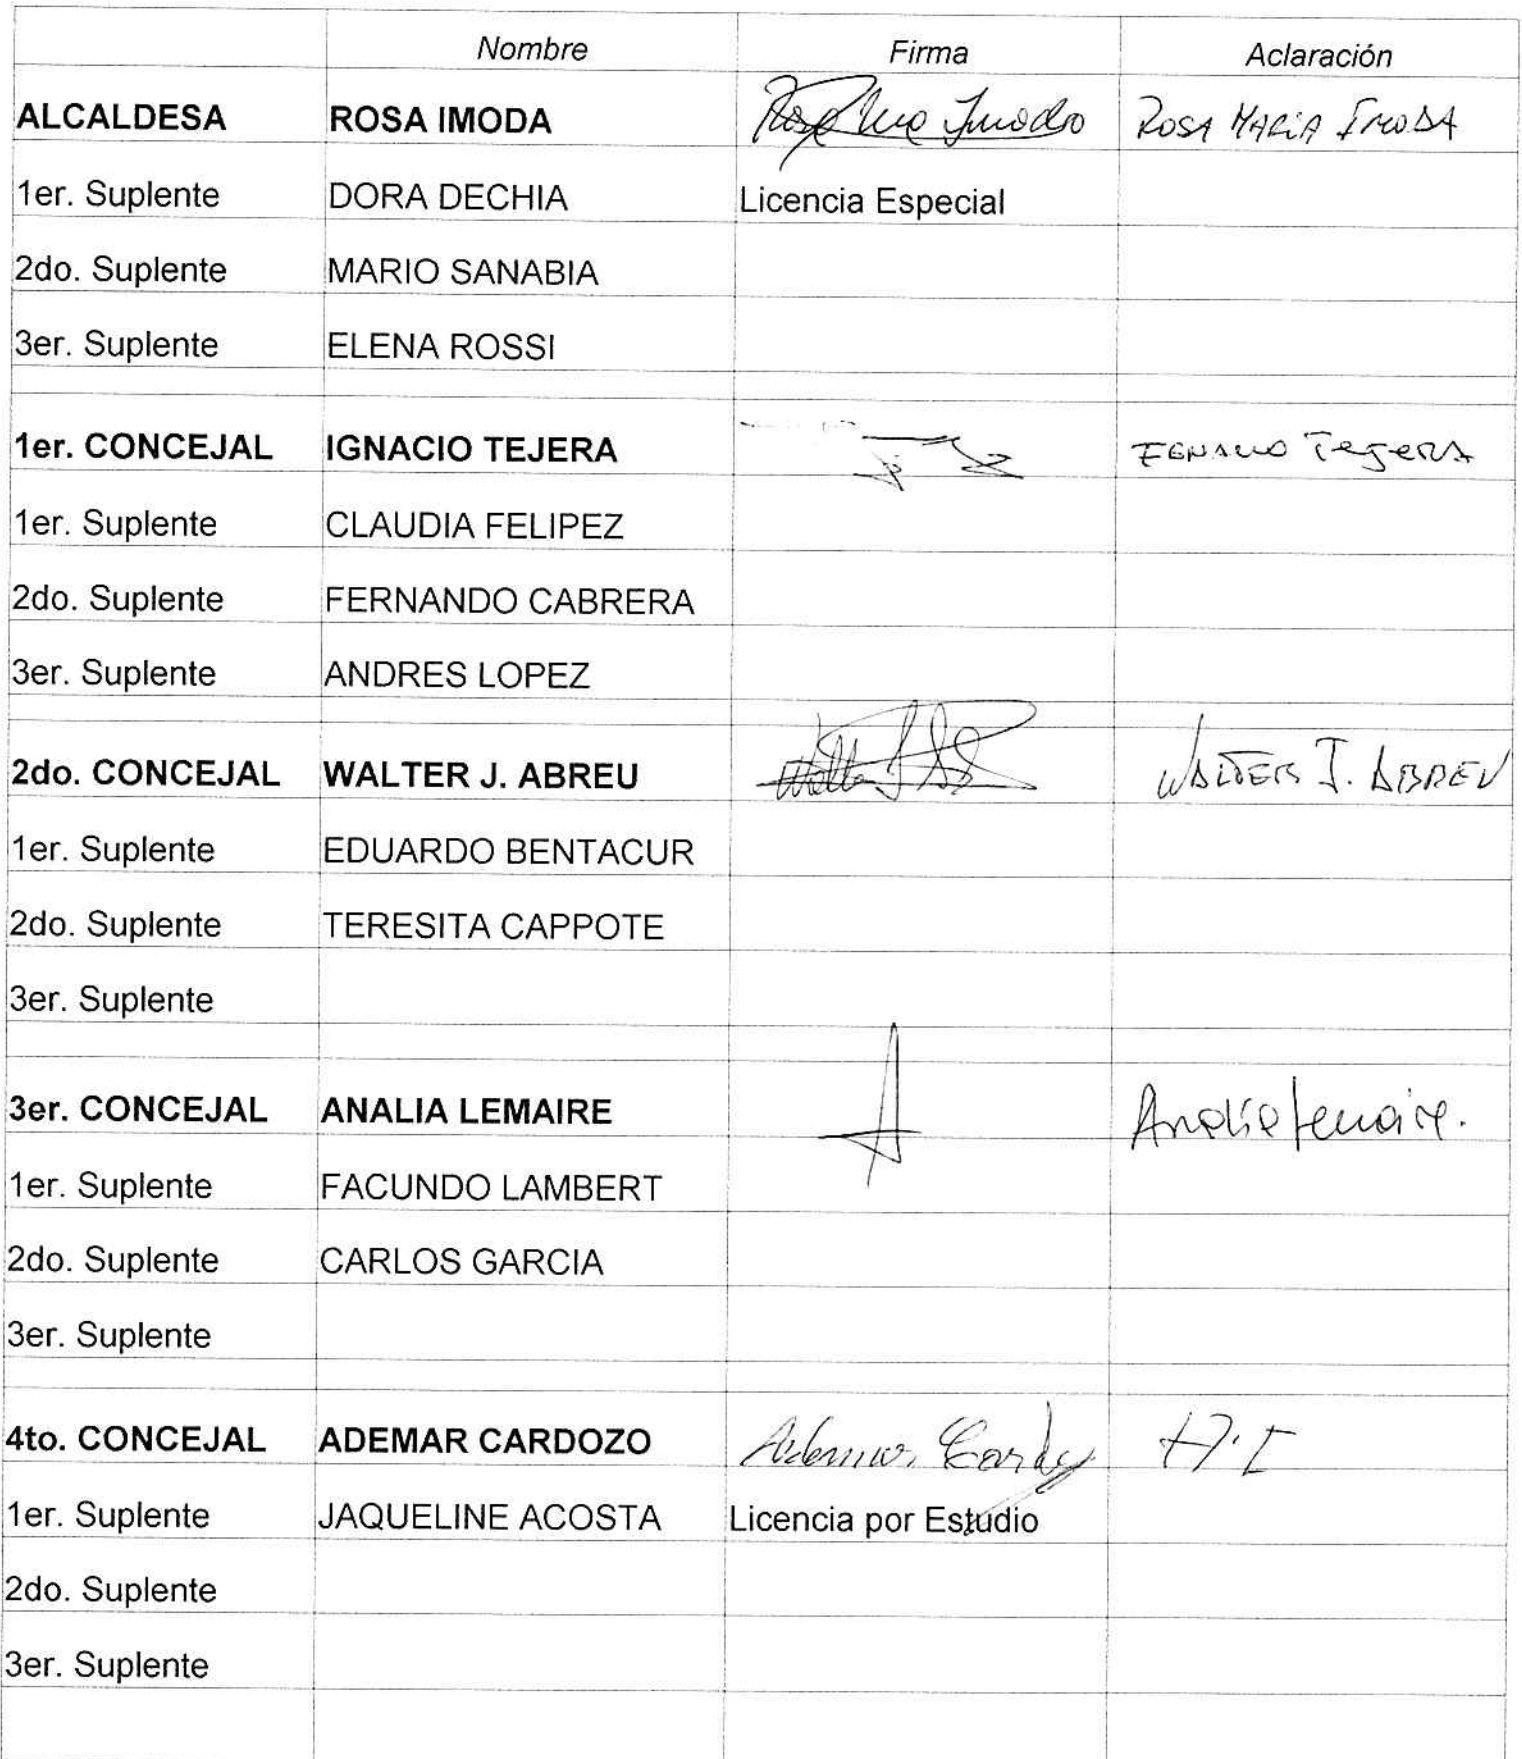 Nombre Firma Aclaración
ALCALDESA ROSA IMODA Rosa Ma Imoda ROSA MARIA IMODA
1er. Suplente DORA DECHIA Licencia Especial
2do. Suplente MARIO SANABIA
3er. Suplente ELENA ROSSI
1er. CONCEJAL IGNACIO TEJERA IGNACIO TEJERA
1er. Suplente CLAUDIA FELIPEZ
2do. Suplente FERNANDO CABRERA
3er. Suplente ANDRES LOPEZ
2do. CONCEJAL WALTER J. ABREU WALTER J. ABREU
1er. Suplente EDUARDO BENTACUR
2do. Suplente TERESITA CAPPOTE
3er. Suplente
3er. CONCEJAL ANALIA LEMAIRE Analía Lemaire.
1er. Suplente FACUNDO LAMBERT
2do. Suplente CARLOS GARCIA
3er. Suplente
4to. CONCEJAL ADEMAR CARDOZO Ademar Cardozo
1er. Suplente JAQUELINE ACOSTA Licencia por Estudio
2do. Suplente
3er. Suplente